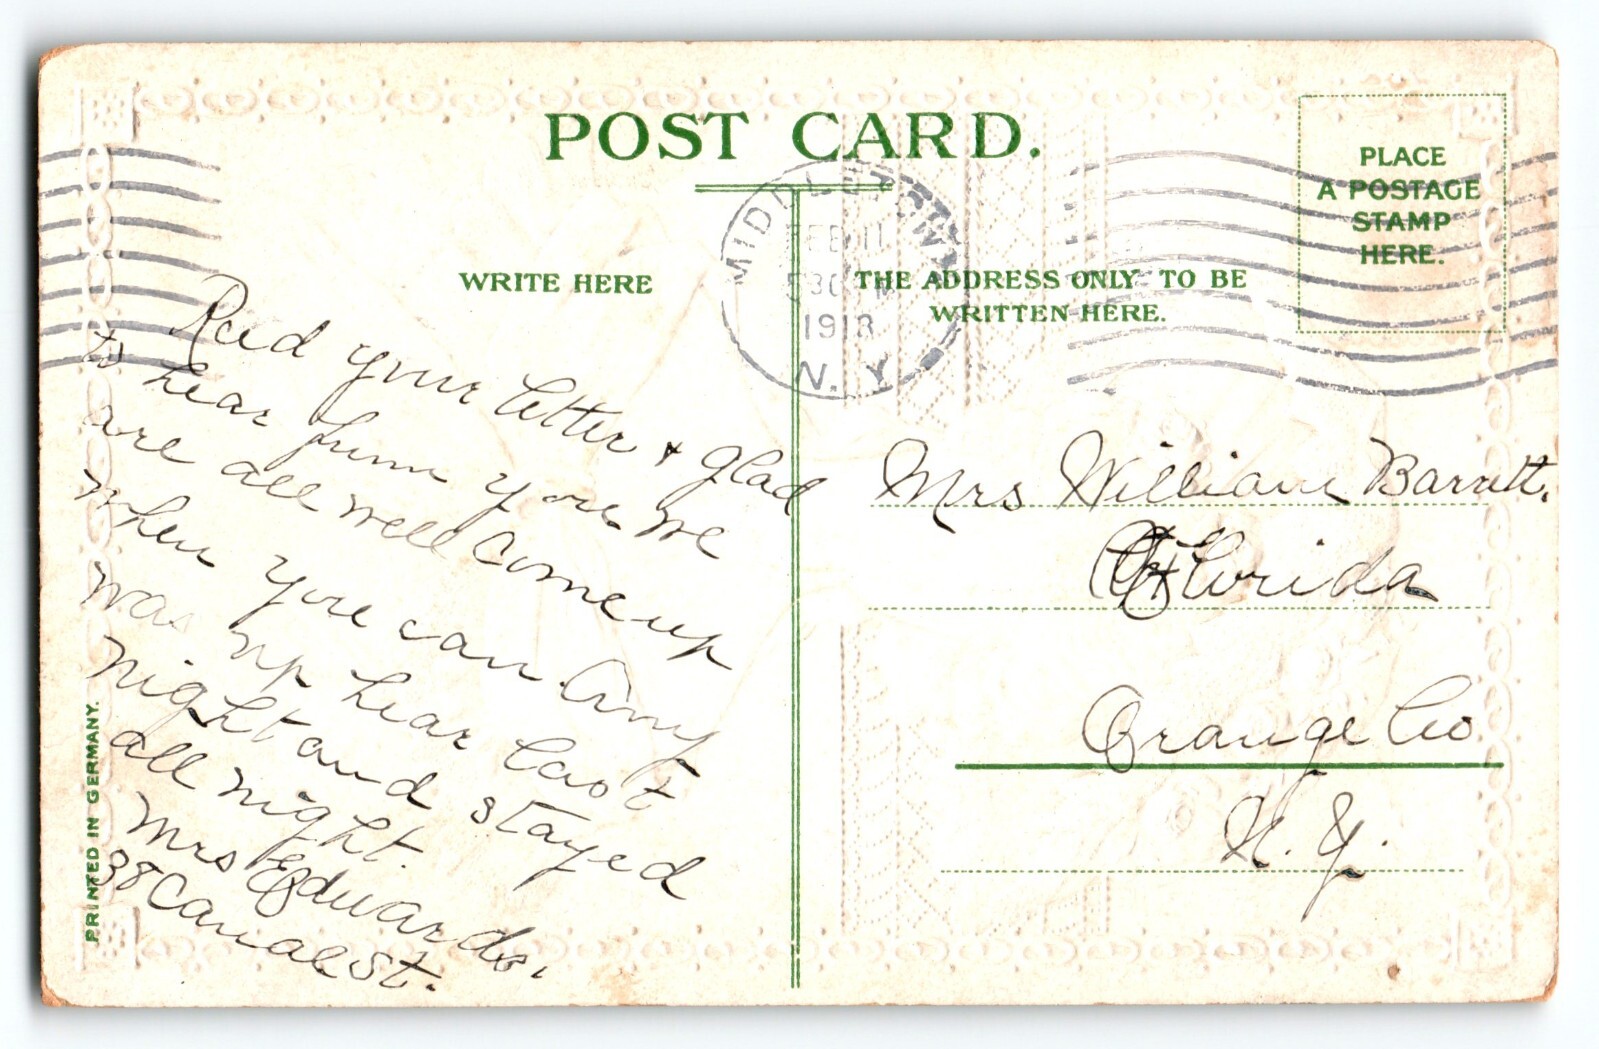 POST CARD.
WRITE HERE
THE ADDRESS ONLY TO BE
WRITTEN HERE.
PLACE
A POSTAGE
STAMP
HERE.
MIDDLETOWN
FEB 11
530 M
1913
N. Y.
Recd your letter & glad
to hear from you we
are all well come up
when you can Amy
was up hear last
night and stayed
all night.
Mrs Edwards.
38 Canal St.
Mrs William Barrett.
Florida
Orange Co
N. Y.
PRINTED IN GERMANY.